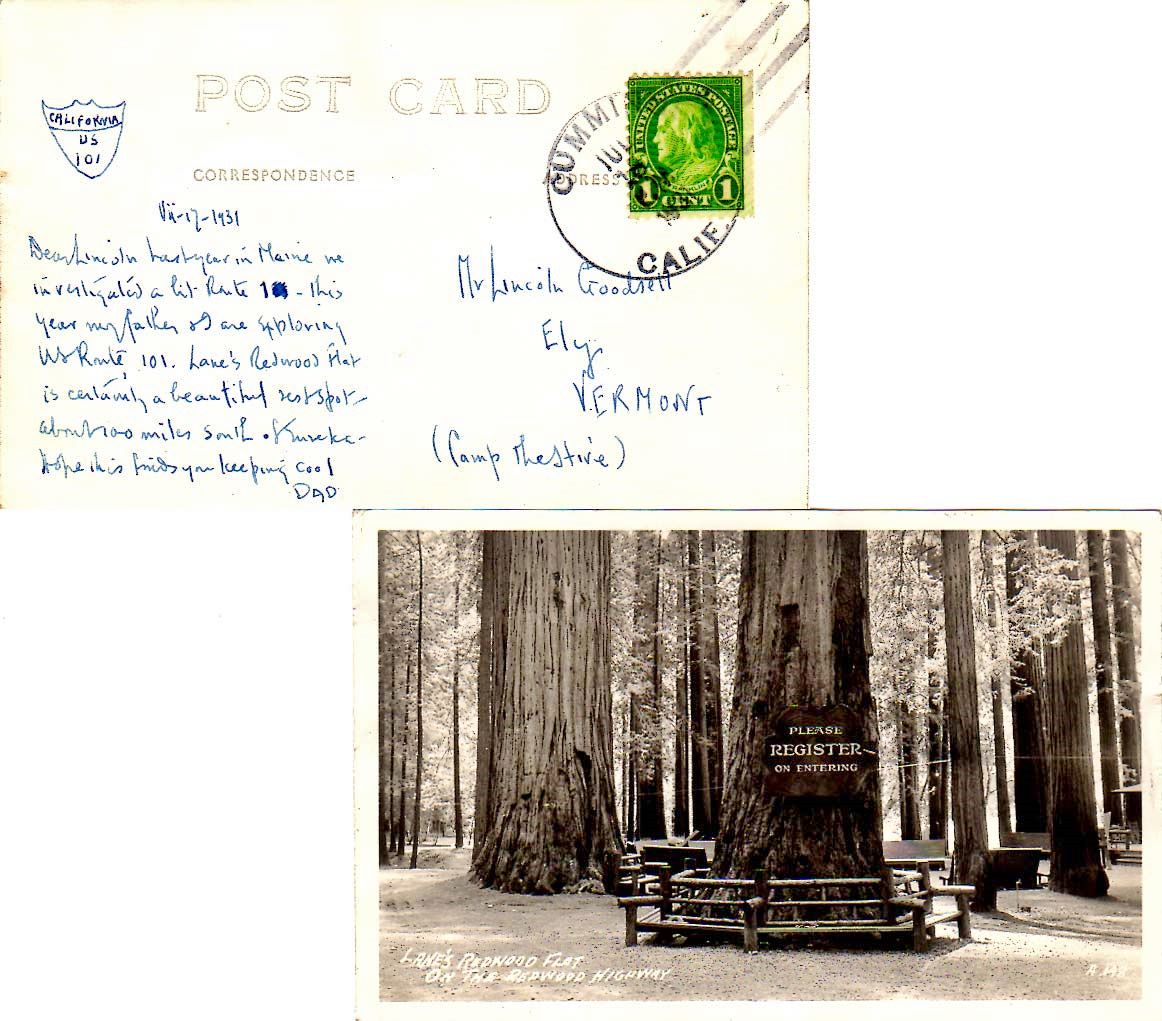 POST CARD
CALIFORNIA
US
101
CORRESPONDENCE
ADDRESS
UNITED STATES POSTAGE
FRANKLIN
1 CENT 1
CUMMI
CALIF.
VII-17-1931
Dear Lincoln Last year in Maine we
investigated a bit Route 1 - this
year my father & I are exploring
US Route 101. Lane's Redwood Flat
is certainly a beautiful rest spot -
about 100 miles south of Eureka -
Hope this finds you keeping cool
DAD
Mr Lincoln Goodsell
Ely
VERMONT
(Camp
PLEASE
REGISTER
ON ENTERING
LANE'S REDWOOD FLAT
ON THE REDWOOD HIGHWAY